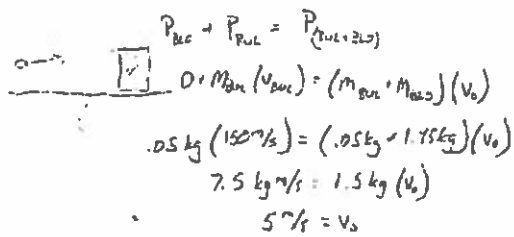 P_BLC + P_BUL = P_(BUL+BLO)
0 + M_BUL (V_BUL) = (M_BUL + M_BLO)(V_0)
.05 kg (150 m/s) = (.05 kg + 1.45 kg)(V_0)
7.5 kg m/s = 1.5 kg (V_0)
5 m/s = V_0